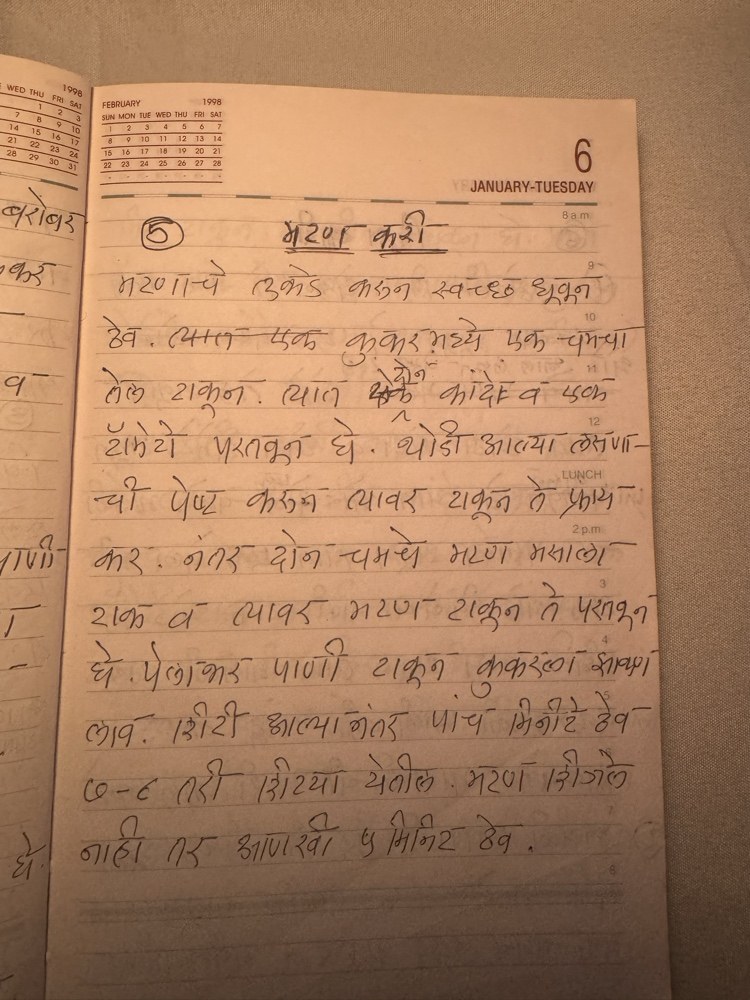 WED THU FRI SAT
1998
1 2 3
7 8 9 10
14 15 16 17
21 22 23 24
28 29 30 31
बरोबर
कर
व
पाणी
घे.
FEBRUARY 1998
SUN MON TUE WED THU FRI SAT
1 2 3 4 5 6 7
8 9 10 11 12 13 14
15 16 17 18 19 20 21
22 23 24 25 26 27 28
6
JANUARY-TUESDAY
8 a m
5 मटण करी
9
मटणाचे तुकडे करून स्वच्छ धूवून
10
ठेव. त्यात एक कुकरमध्ये एक चमचा
11
दोन
तेल टाकून. त्यात एक कांदे व एक
12
टॉमेटो परतवून घे. थोडी आल्या लसणा-
LUNCH
ची पेष्ट करून त्यावर टाकून ते फ्राय
2 p.m
कर. नंतर दोन चमचे मटण मसाला
3
टाक व त्यावर मटण टाकून ते परतवून
4
घे. पेलाभर पाणी टाकून कुकरला झाकण
5
लाव. शिटी आल्यानंतर पांच मिनीटे ठेव
७-८ तरी शिट्या येतील. मटण शिजले
7
नाही तर आणखी ५ मिनिट ठेव.
8